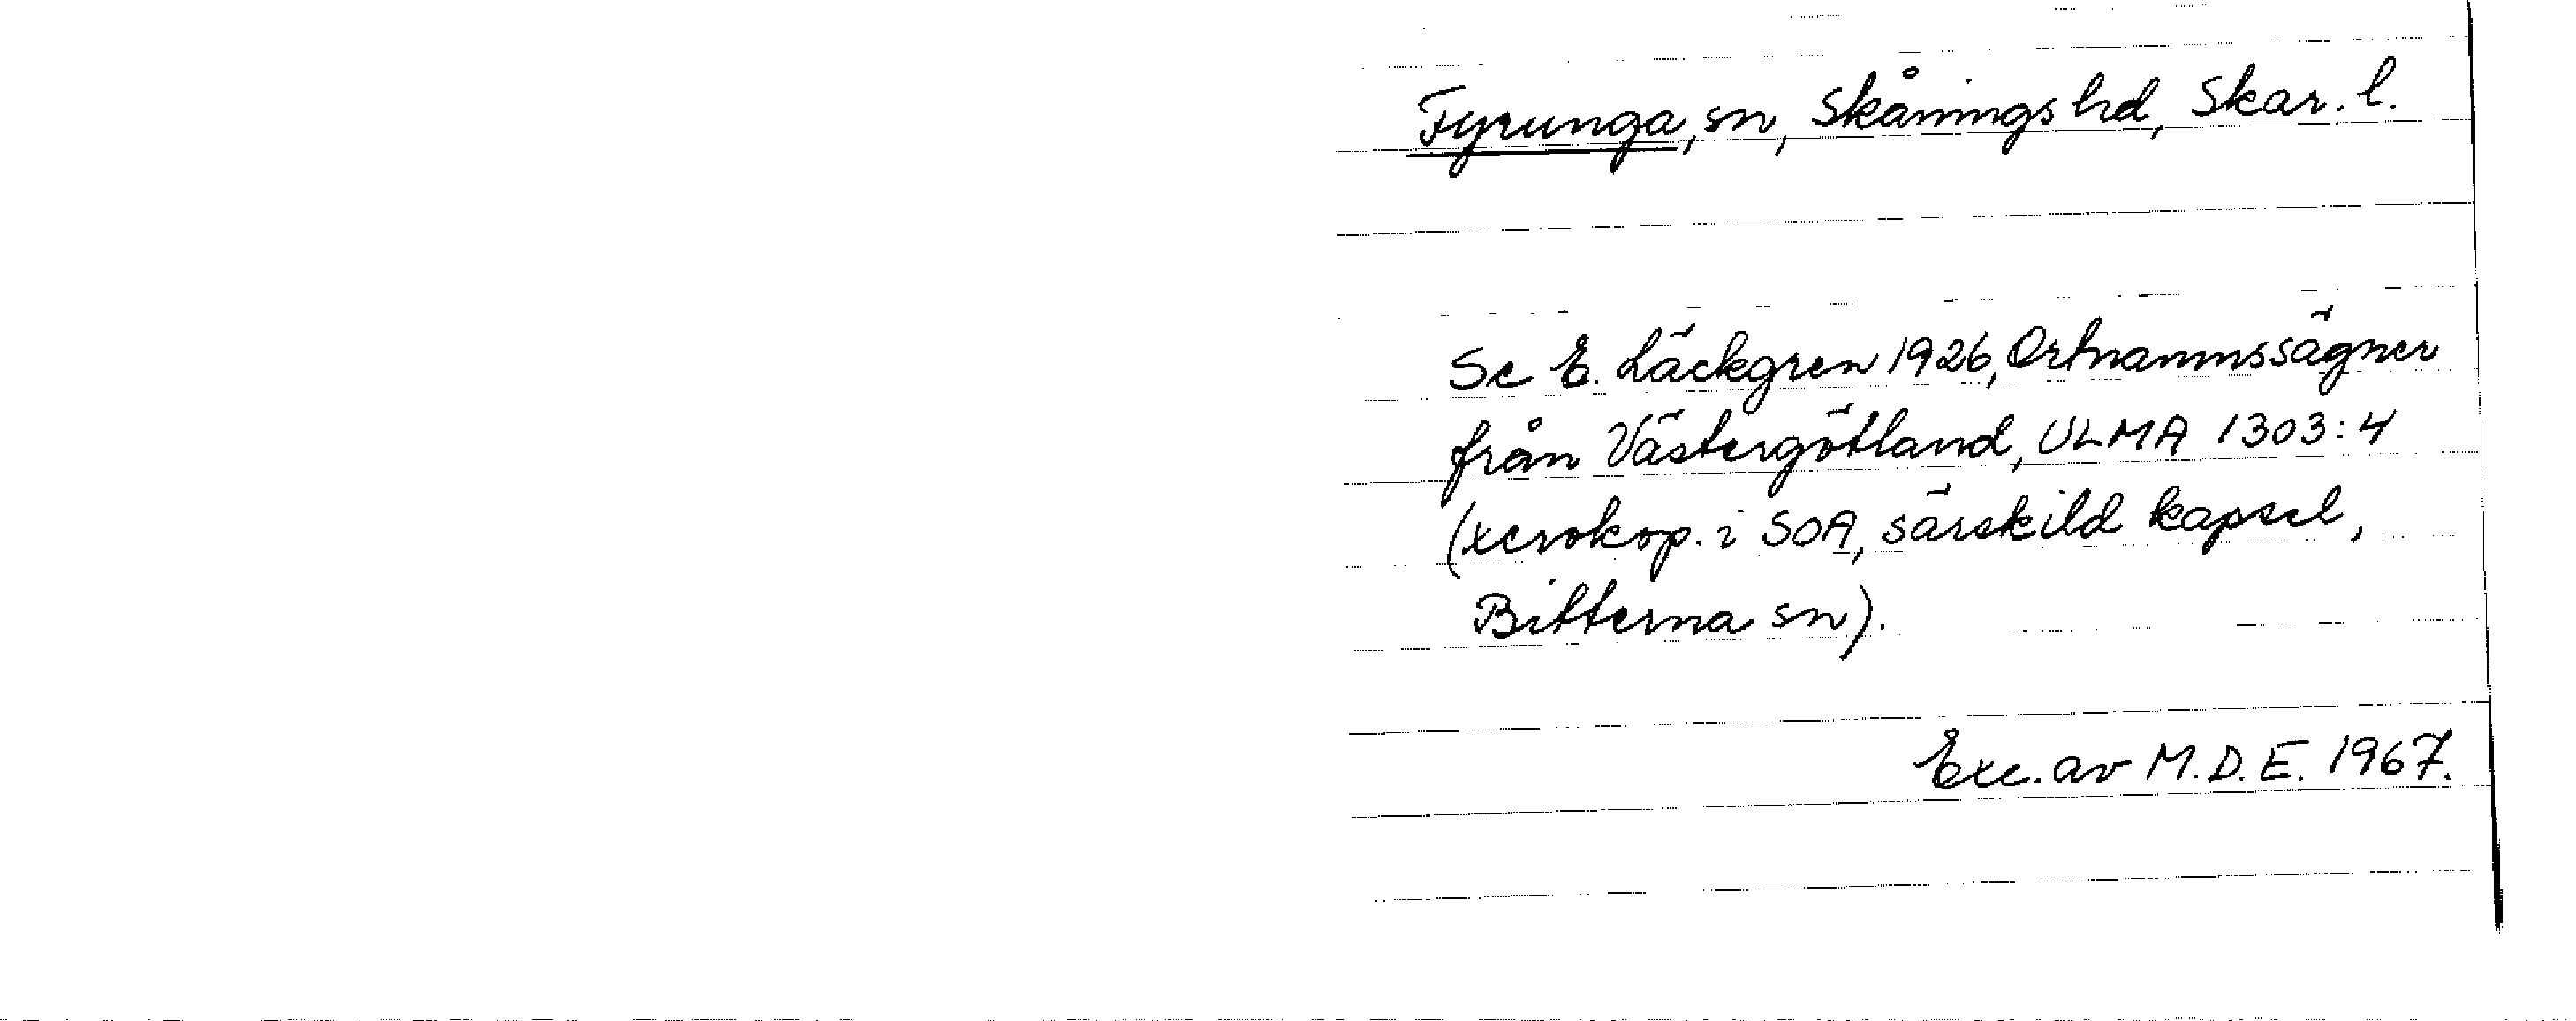 Fyrunga, sn, Skånings hd, Skar. l.
Se E. Läckgren 1926, Ortnamnssägner
från Västergötland, ULMA 1303:4
(xerokop. i SOA, särskild kapsel,
Bitterna sn).
Exc. av M.D.E. 1967.